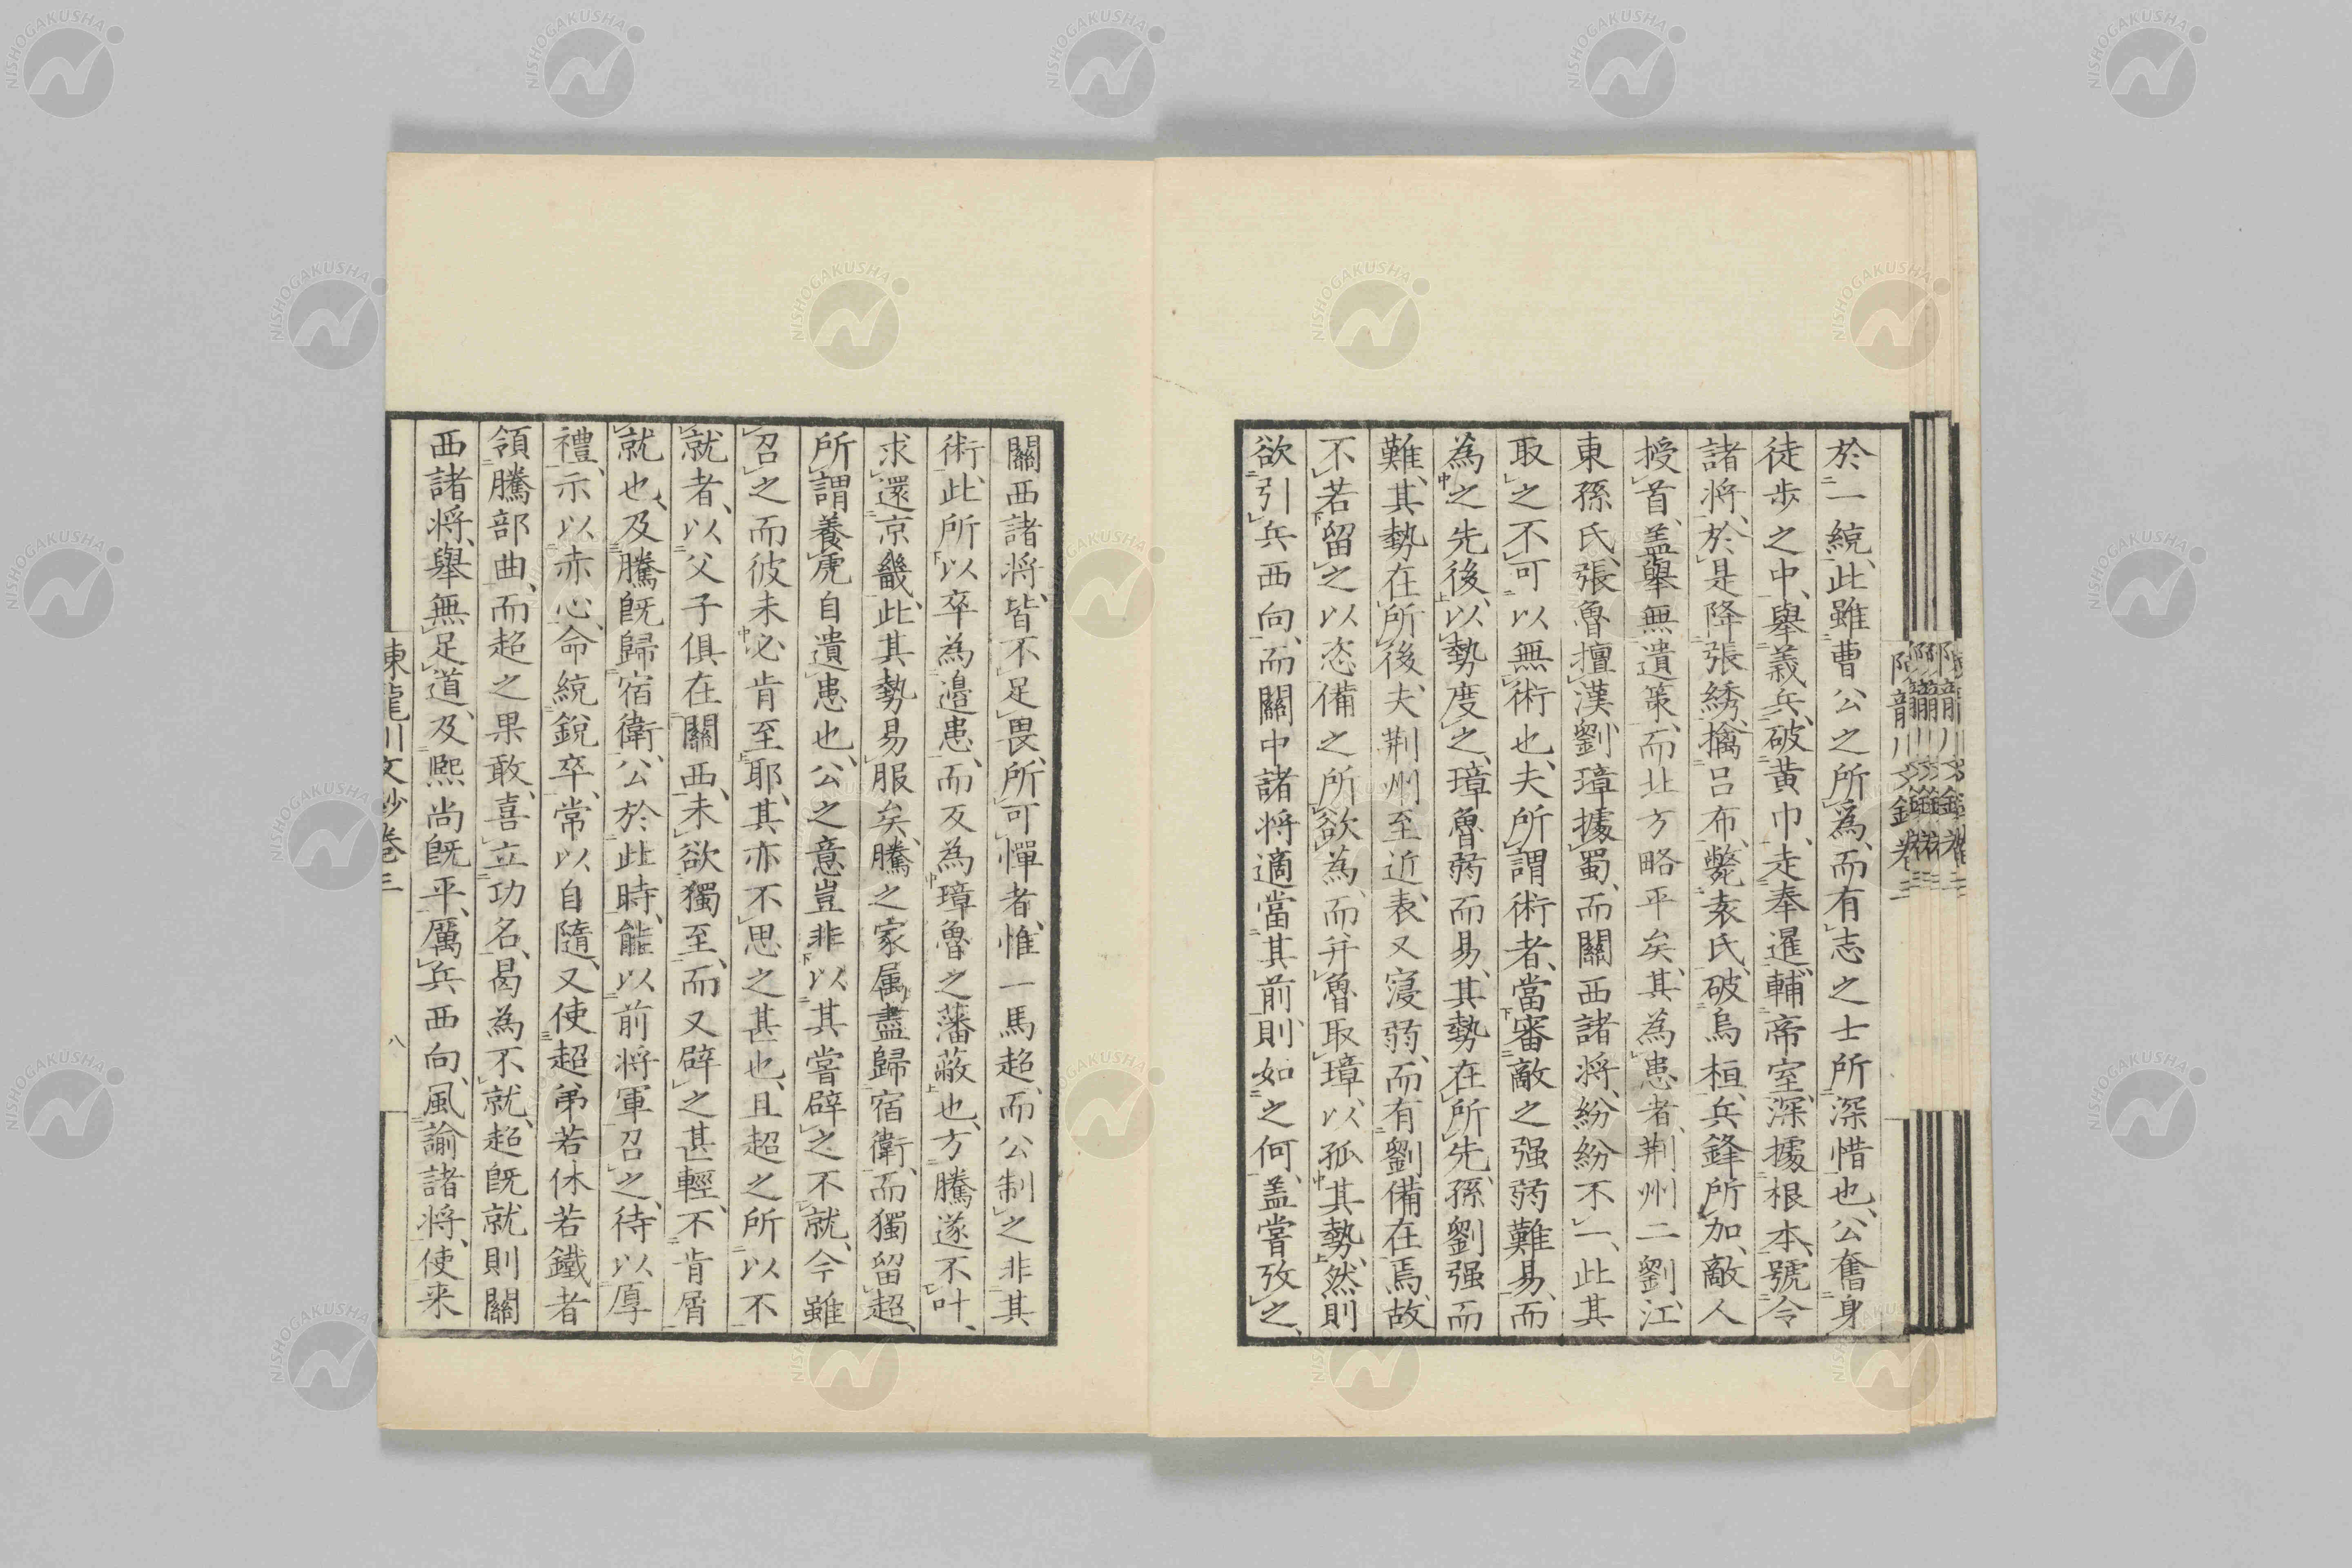 於一統、此雖曹公之所為、而有志之士所深惜也、公奮身
徒步之中、舉義兵、破黄巾、走奉暹、輔帝室、深據根本、號令
諸将、於是降張綉、擒呂布、斃袁氏、破烏桓、兵鋒所加、敵人
授首、盖舉無遺策、而北方略平矣、其為患者、荆州二劉、江
東孫氏、張魯擅漢、劉璋據蜀、而關西諸将、紛紛不一、此其
取之不可以無術也、夫所謂術者、當審敵之强弱難易、而
為之先後、以勢度之、璋魯弱而易、其勢在所先、孫劉强而
難、其勢在所後、夫荆州至近、表又寖弱、而有劉備在焉、故
不若留之以恣備之所欲為、而并魯取璋、以孤其勢、然則
欲引兵西向、而關中諸将適當其前、則如之何、盖嘗攷之、
關西諸将、皆不足畏、所可憚者、惟一馬超、而公制之非其
術、此所以卒為邉患、而反為璋魯之藩蔽也、方騰遂不叶、
求還京畿、此其勢易服矣、騰之家属盡歸宿衛、而獨留超、
所謂養虎自遺患也、公之意豈非以其嘗辟之不就、今雖
召之而彼未必肯至耶、其亦不思之甚也、且超之所以不
就者、以父子俱在關西、未欲獨至、而又辟之甚輕、不肯屑
就也、及騰既歸宿衛、公於此時、能以前将軍召之、待以厚
禮、示以赤心、命統銳卒、常以自隨、又使超弟若休若鐵者
領騰部曲、而超之果敢、喜立功名、曷為不就、超既就則關
西諸将、舉無足道、及熙尚既平、厲兵西向、風諭諸将、使来
陳龍川文鈔卷三
八